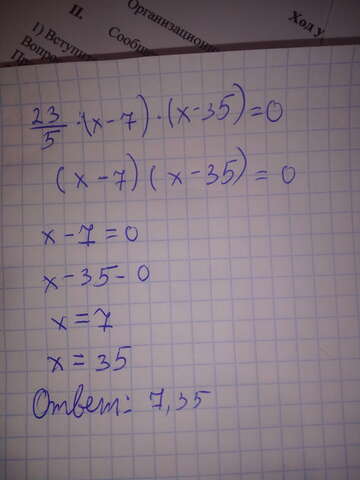 Организационн
Ход у
II.
Сообщ
1) Вступит
Вопро
23/5 · (x-7) · (x-35) = 0
(x-7)(x-35) = 0
x-7=0
x-35-0
x=7
x=35
Ответ: 7,35